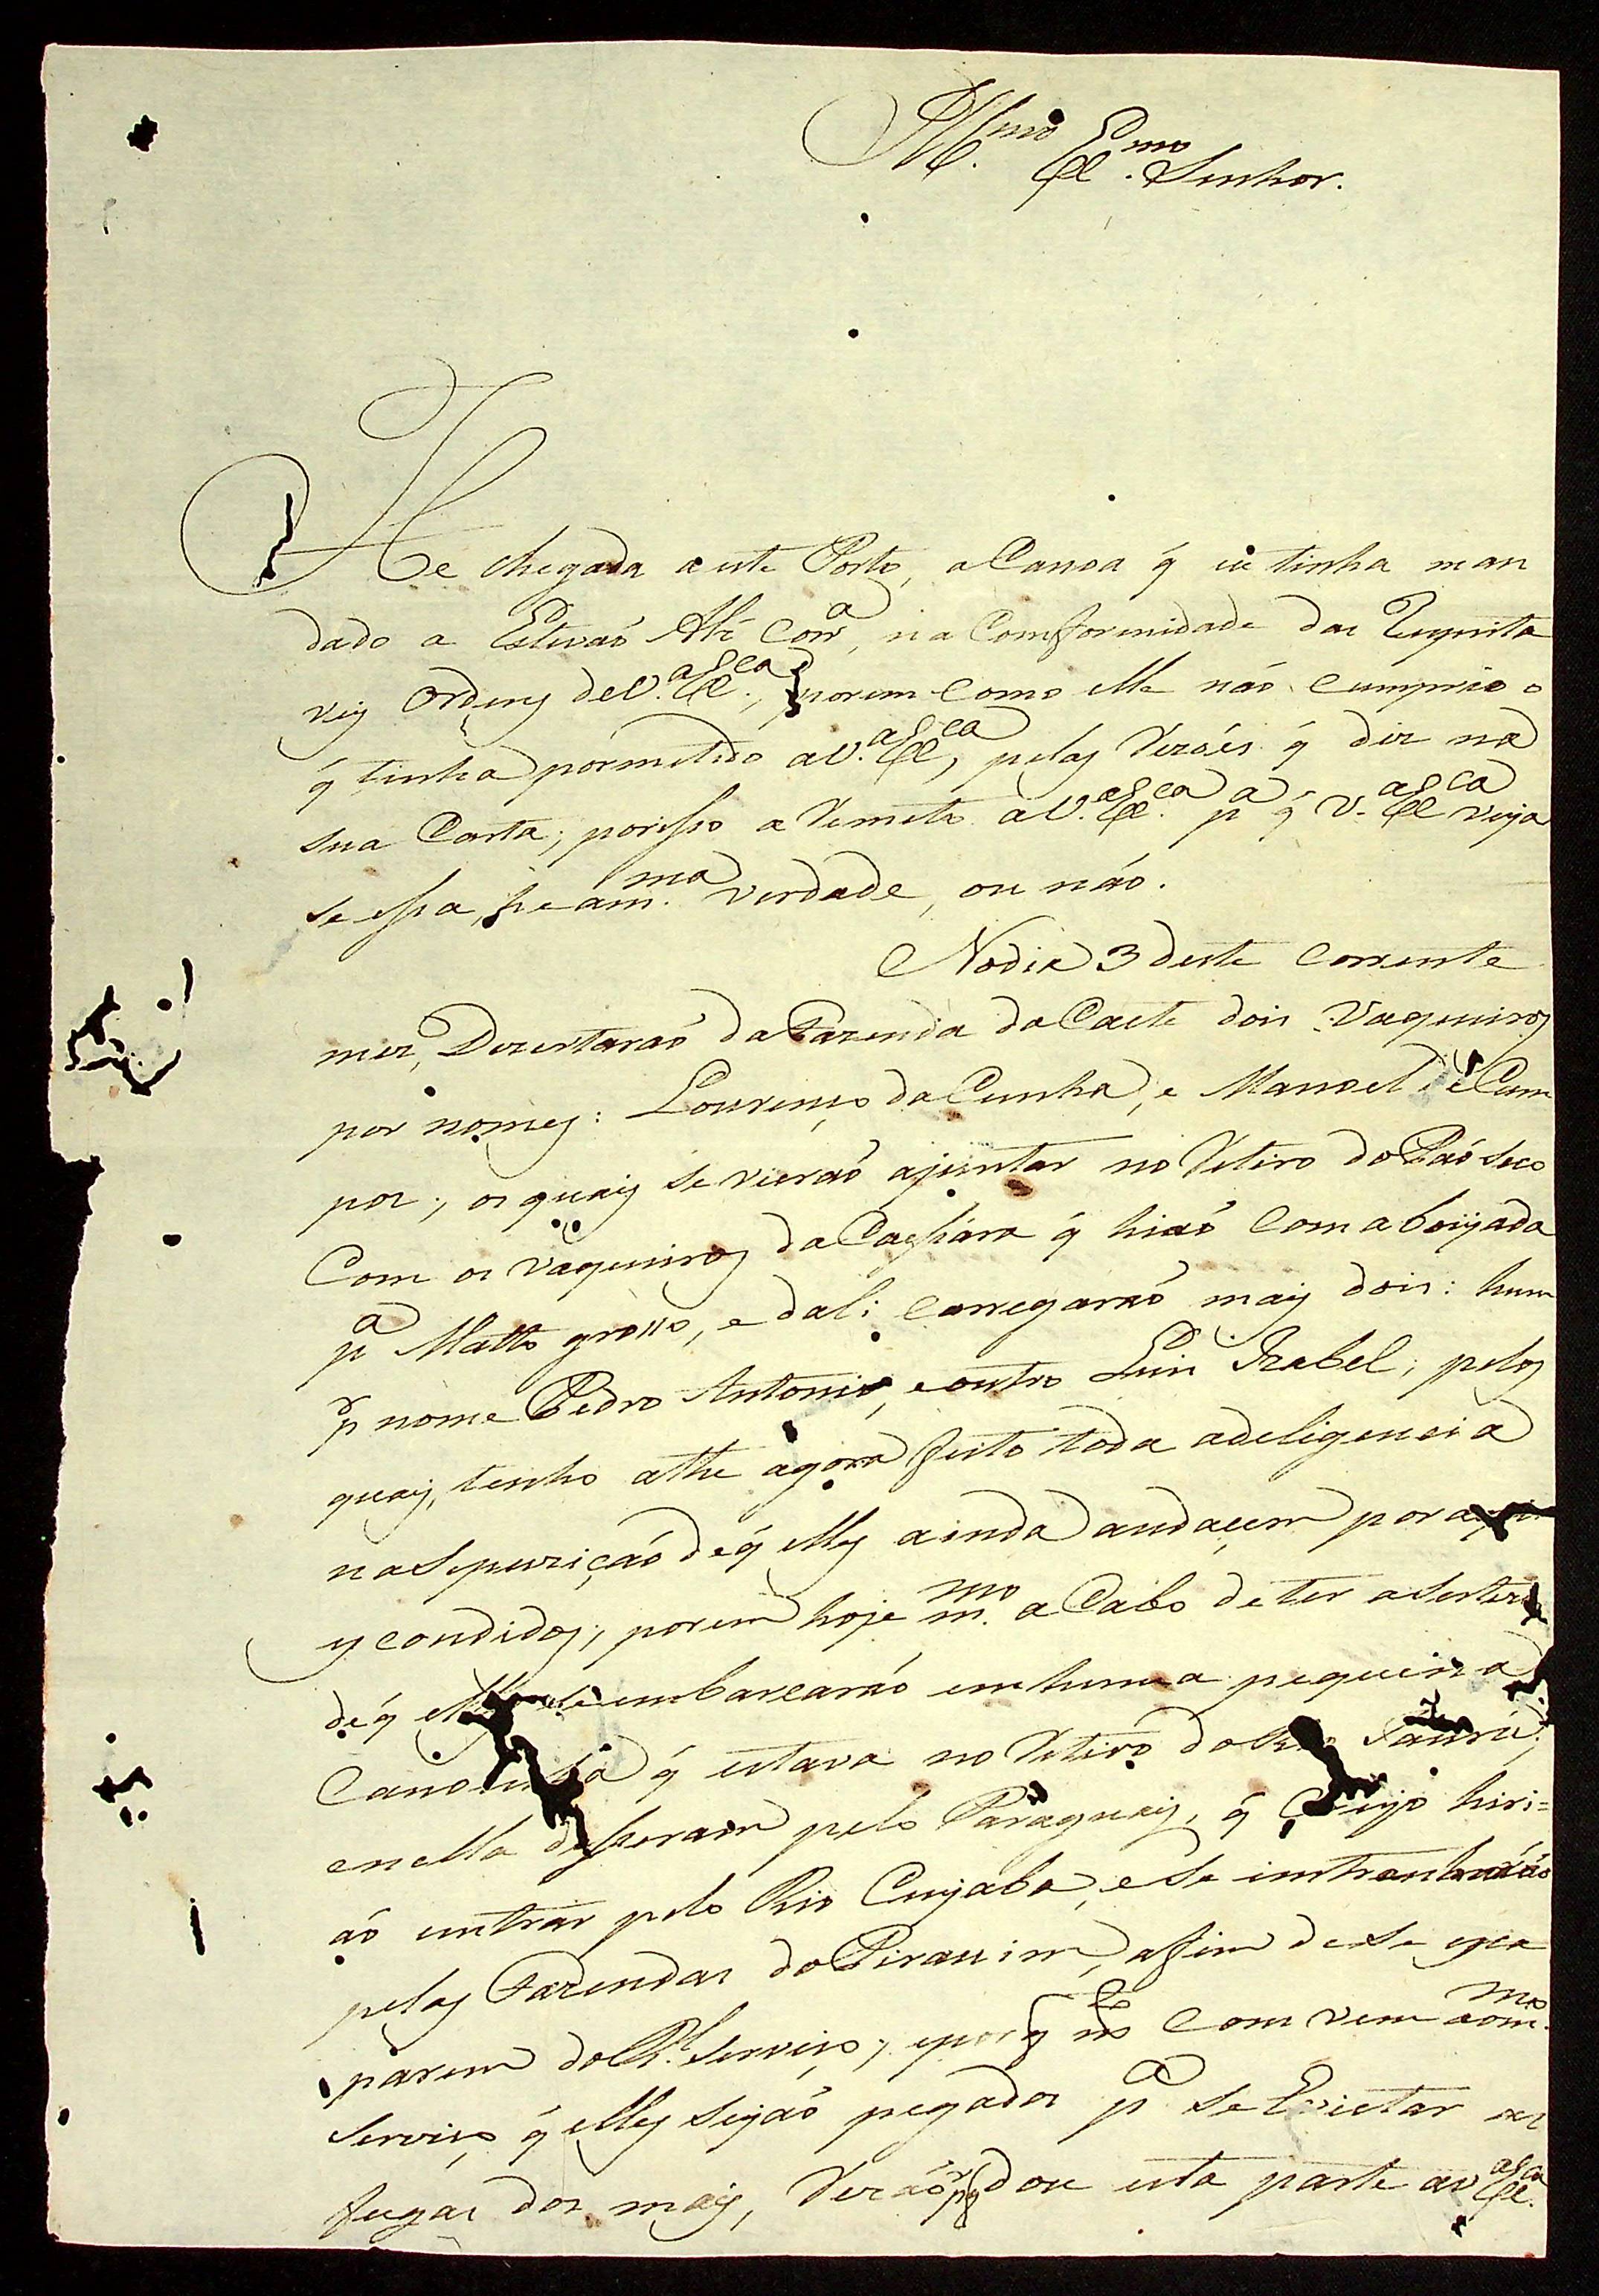 Ill.mo Ex.mo Senhor.
He chegada a este Porto, a Canoa q̃ eu tinha man
dado a Estevaõ Alz̃ Corr.a, na Comformidade das Respeita
veis Ordens de V.a Ex.ca, porem como elle naõ cumprio o
q̃ tinha pormetido a V.a Ex.ca, pelas Rezoẽs q̃ diz na
sua Carta; porisso a Remeto a V.a Ex.ca p.a q̃ V.a Ex.ca veja
se essa he a m.ma verdade, ou naõ.
No dia 3 deste Corrente
mez, Dezertaraõ da Fazenda da Caete dois Vaqueiros
por nomes: Lourenço da Cunha, e Manoel de Cam
pos; os quais se vieraõ ajuntar no Retiro do Páo seco
Com os Vaqueiros da Cassára q̃ hiaõ Com a boiyada
p.a Matto grosso, e dali carregaraõ mais dois: hum
p.r nome Pedro Antonio, e outro Luis Izabel; pelos
quais, tenho athe agora feito toda a deligencia
na Supuziçaõ de q̃ elles ainda andaçem por
escondidos; porem hoje m.mo a Cabo de ter a Serteza
de q̃ elles se embarcaraõ em huma pequena
Canoinha q̃ estava no Retiro do Rio Jaurú,
e nella desseraõ pelo Paraguay, q̃ Creyo hiri=
aõ entrar pelo Rio Cuyaba, e se
pelas Fazendas do Pirauim, afim de se esca
parem do R.l Serviço; e porq̃ Com vem ao m.mo
Serviço q̃ elles sejaõ pegados p.a se Evictar as
fugas dos mais, Rezaõ p.rq̃ dou esta parte a V.a Ex.ca